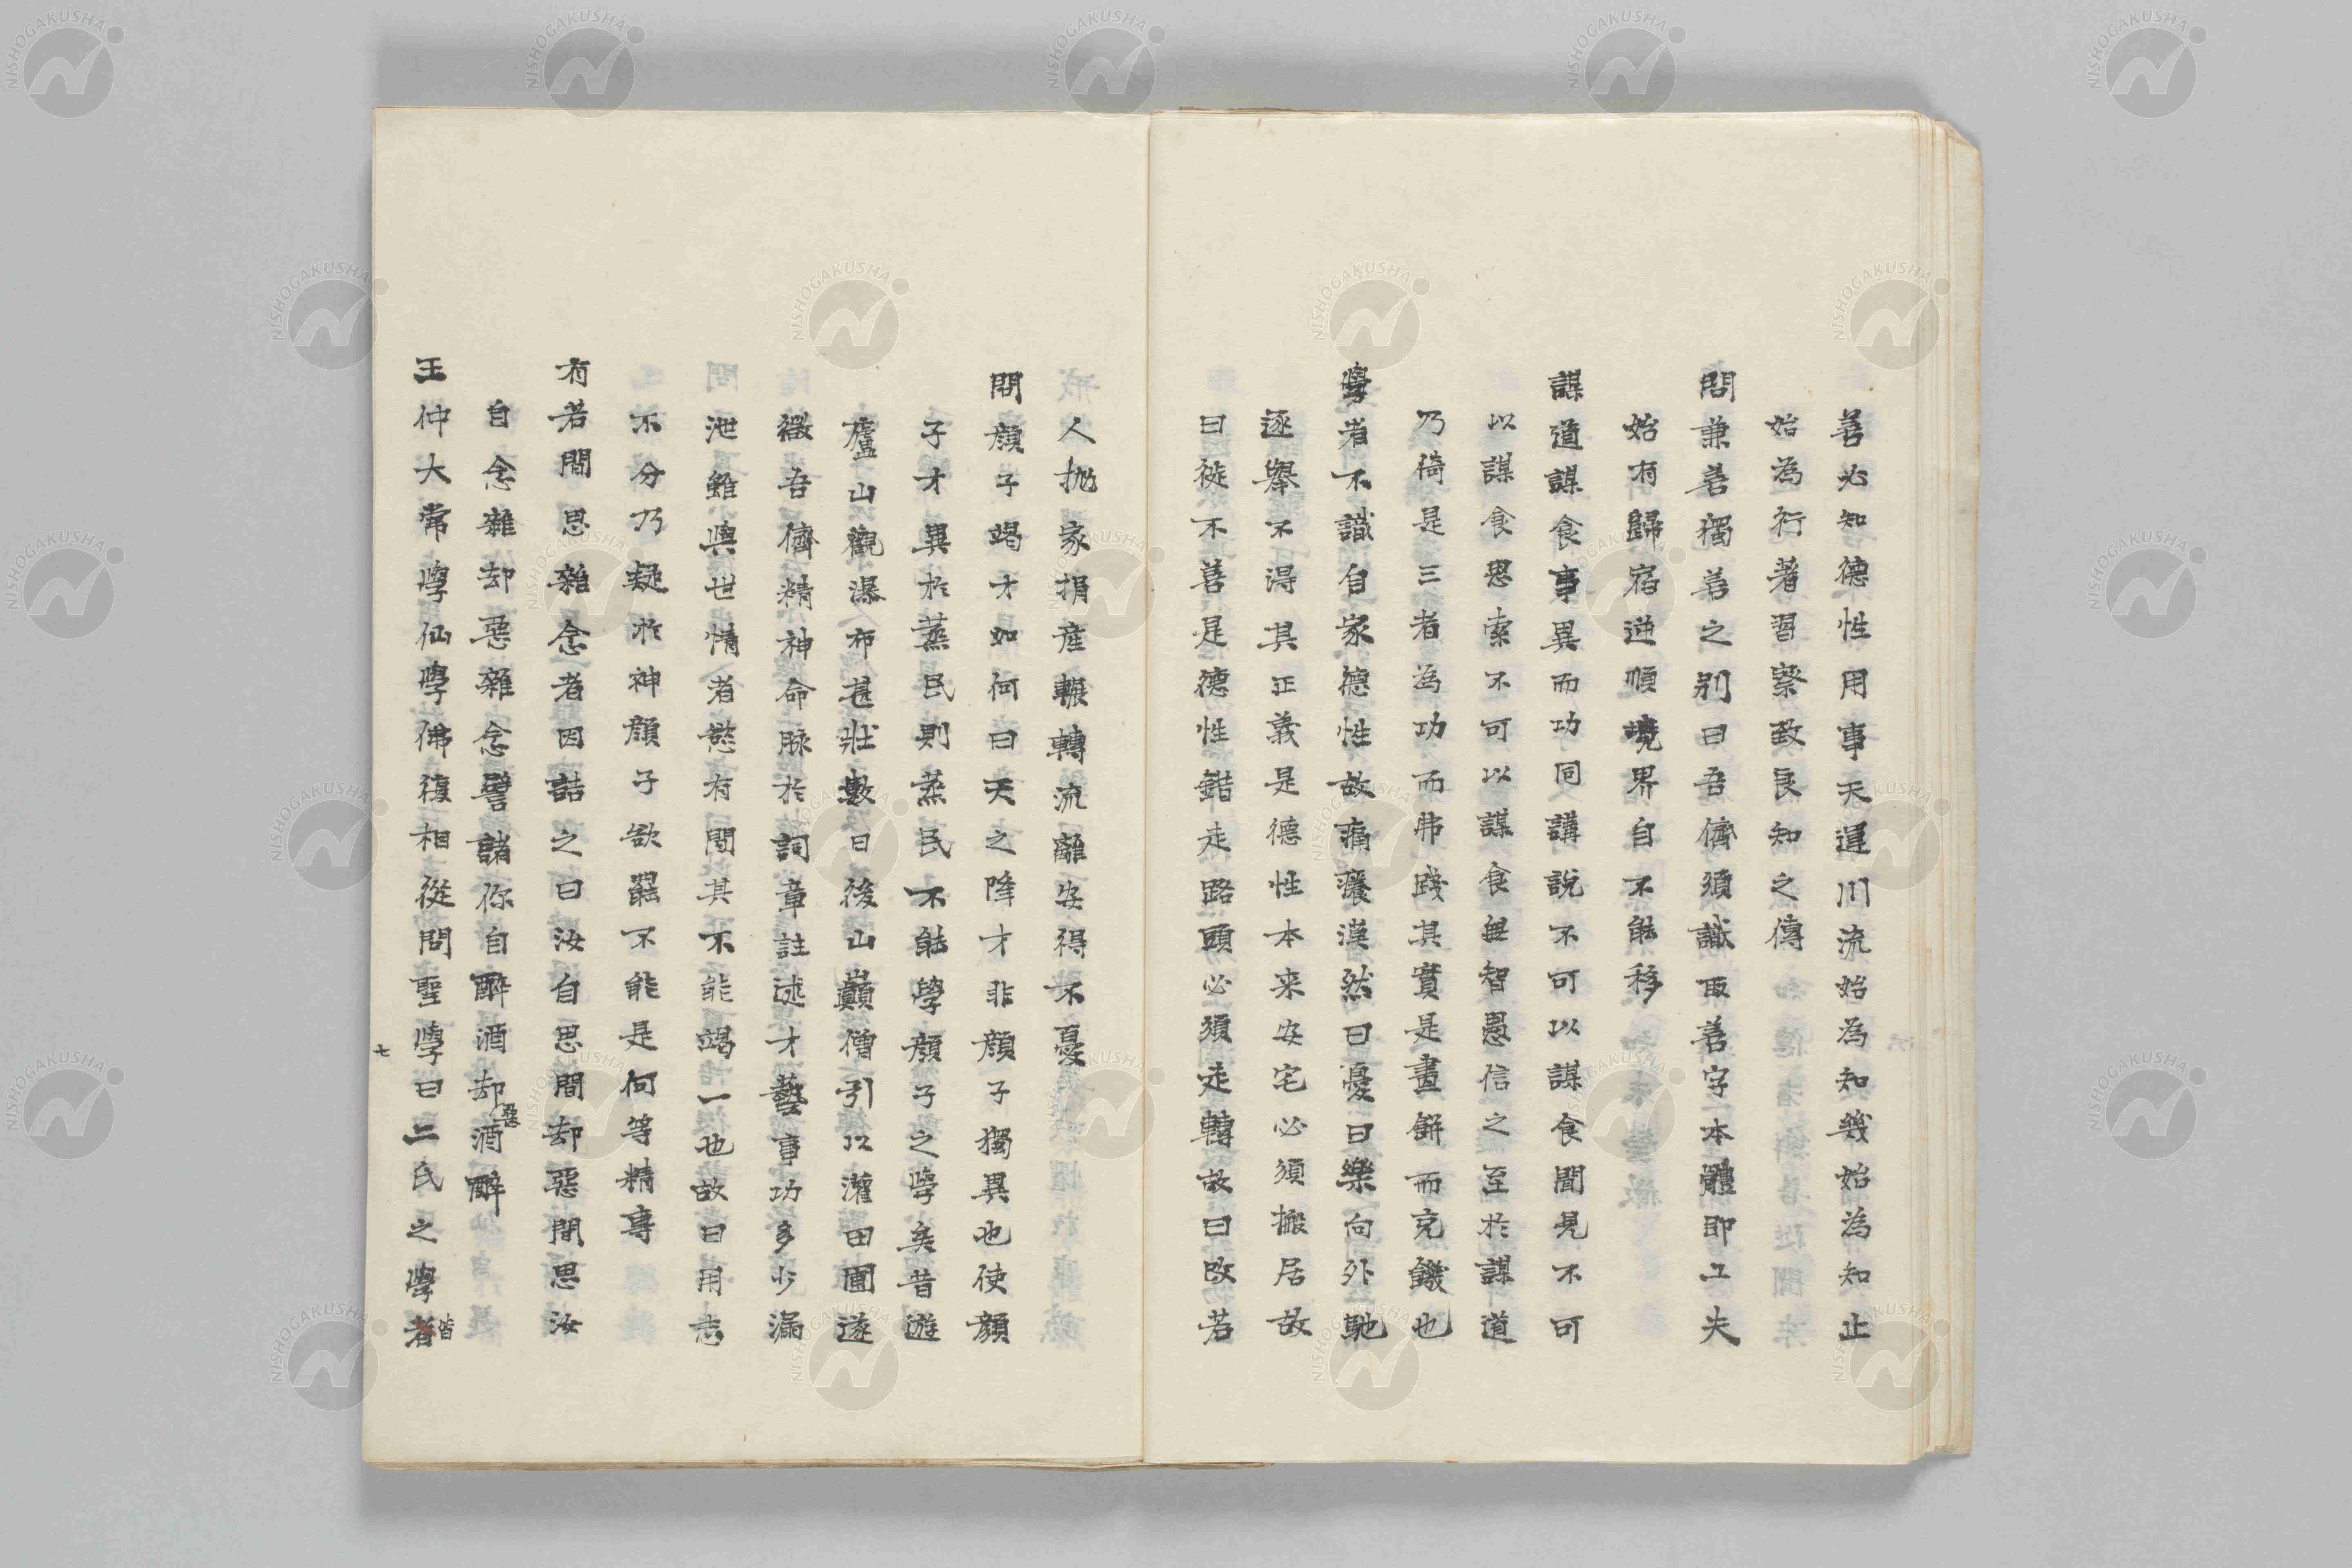 善必知德性用事天運川流始為知幾始為知止
始為行著習察致良知之傳
問兼善獨善之別曰吾儕須識取善字本體即工夫
始有歸宿逆順境界自不能移
謀道謀食事異而功同講說不可以謀食聞見不可
以謀食思索不可以謀食無智愚信之至於謀道
乃倚是三者為功而弗踐其實是畫餅而充饑也
學者不識自家德性故痛癢漠然曰憂曰樂向外馳
逐舉不得其正義是德性本来安宅必須搬居故
曰徙不善是德性錯走路頭必須走轉故曰改若
人抛家捐産輾轉流離安得不憂
問顏子竭才如何曰天之降才非顏子獨異也使顏
子才異於蒸民則蒸民不能學顏子之學矣昔遊
廬山觀瀑布甚壯數日後山巔僧引以灌田圃遂
微吾儕精神命脉於詞章註述才藝事功多少漏
泄雖與世情者慾有間其不能竭一也故曰用志
不分乃疑於神顏子欲罷不能是何等精專
有若問思雜念者因詰之曰汝自思間却惡間思汝
自念雜却惡雜念譬諸你自醉酒却惡酒醉
王仲大常學仙學佛復相從問聖學曰二氏之學者皆
七
NISHOGAKUSHA